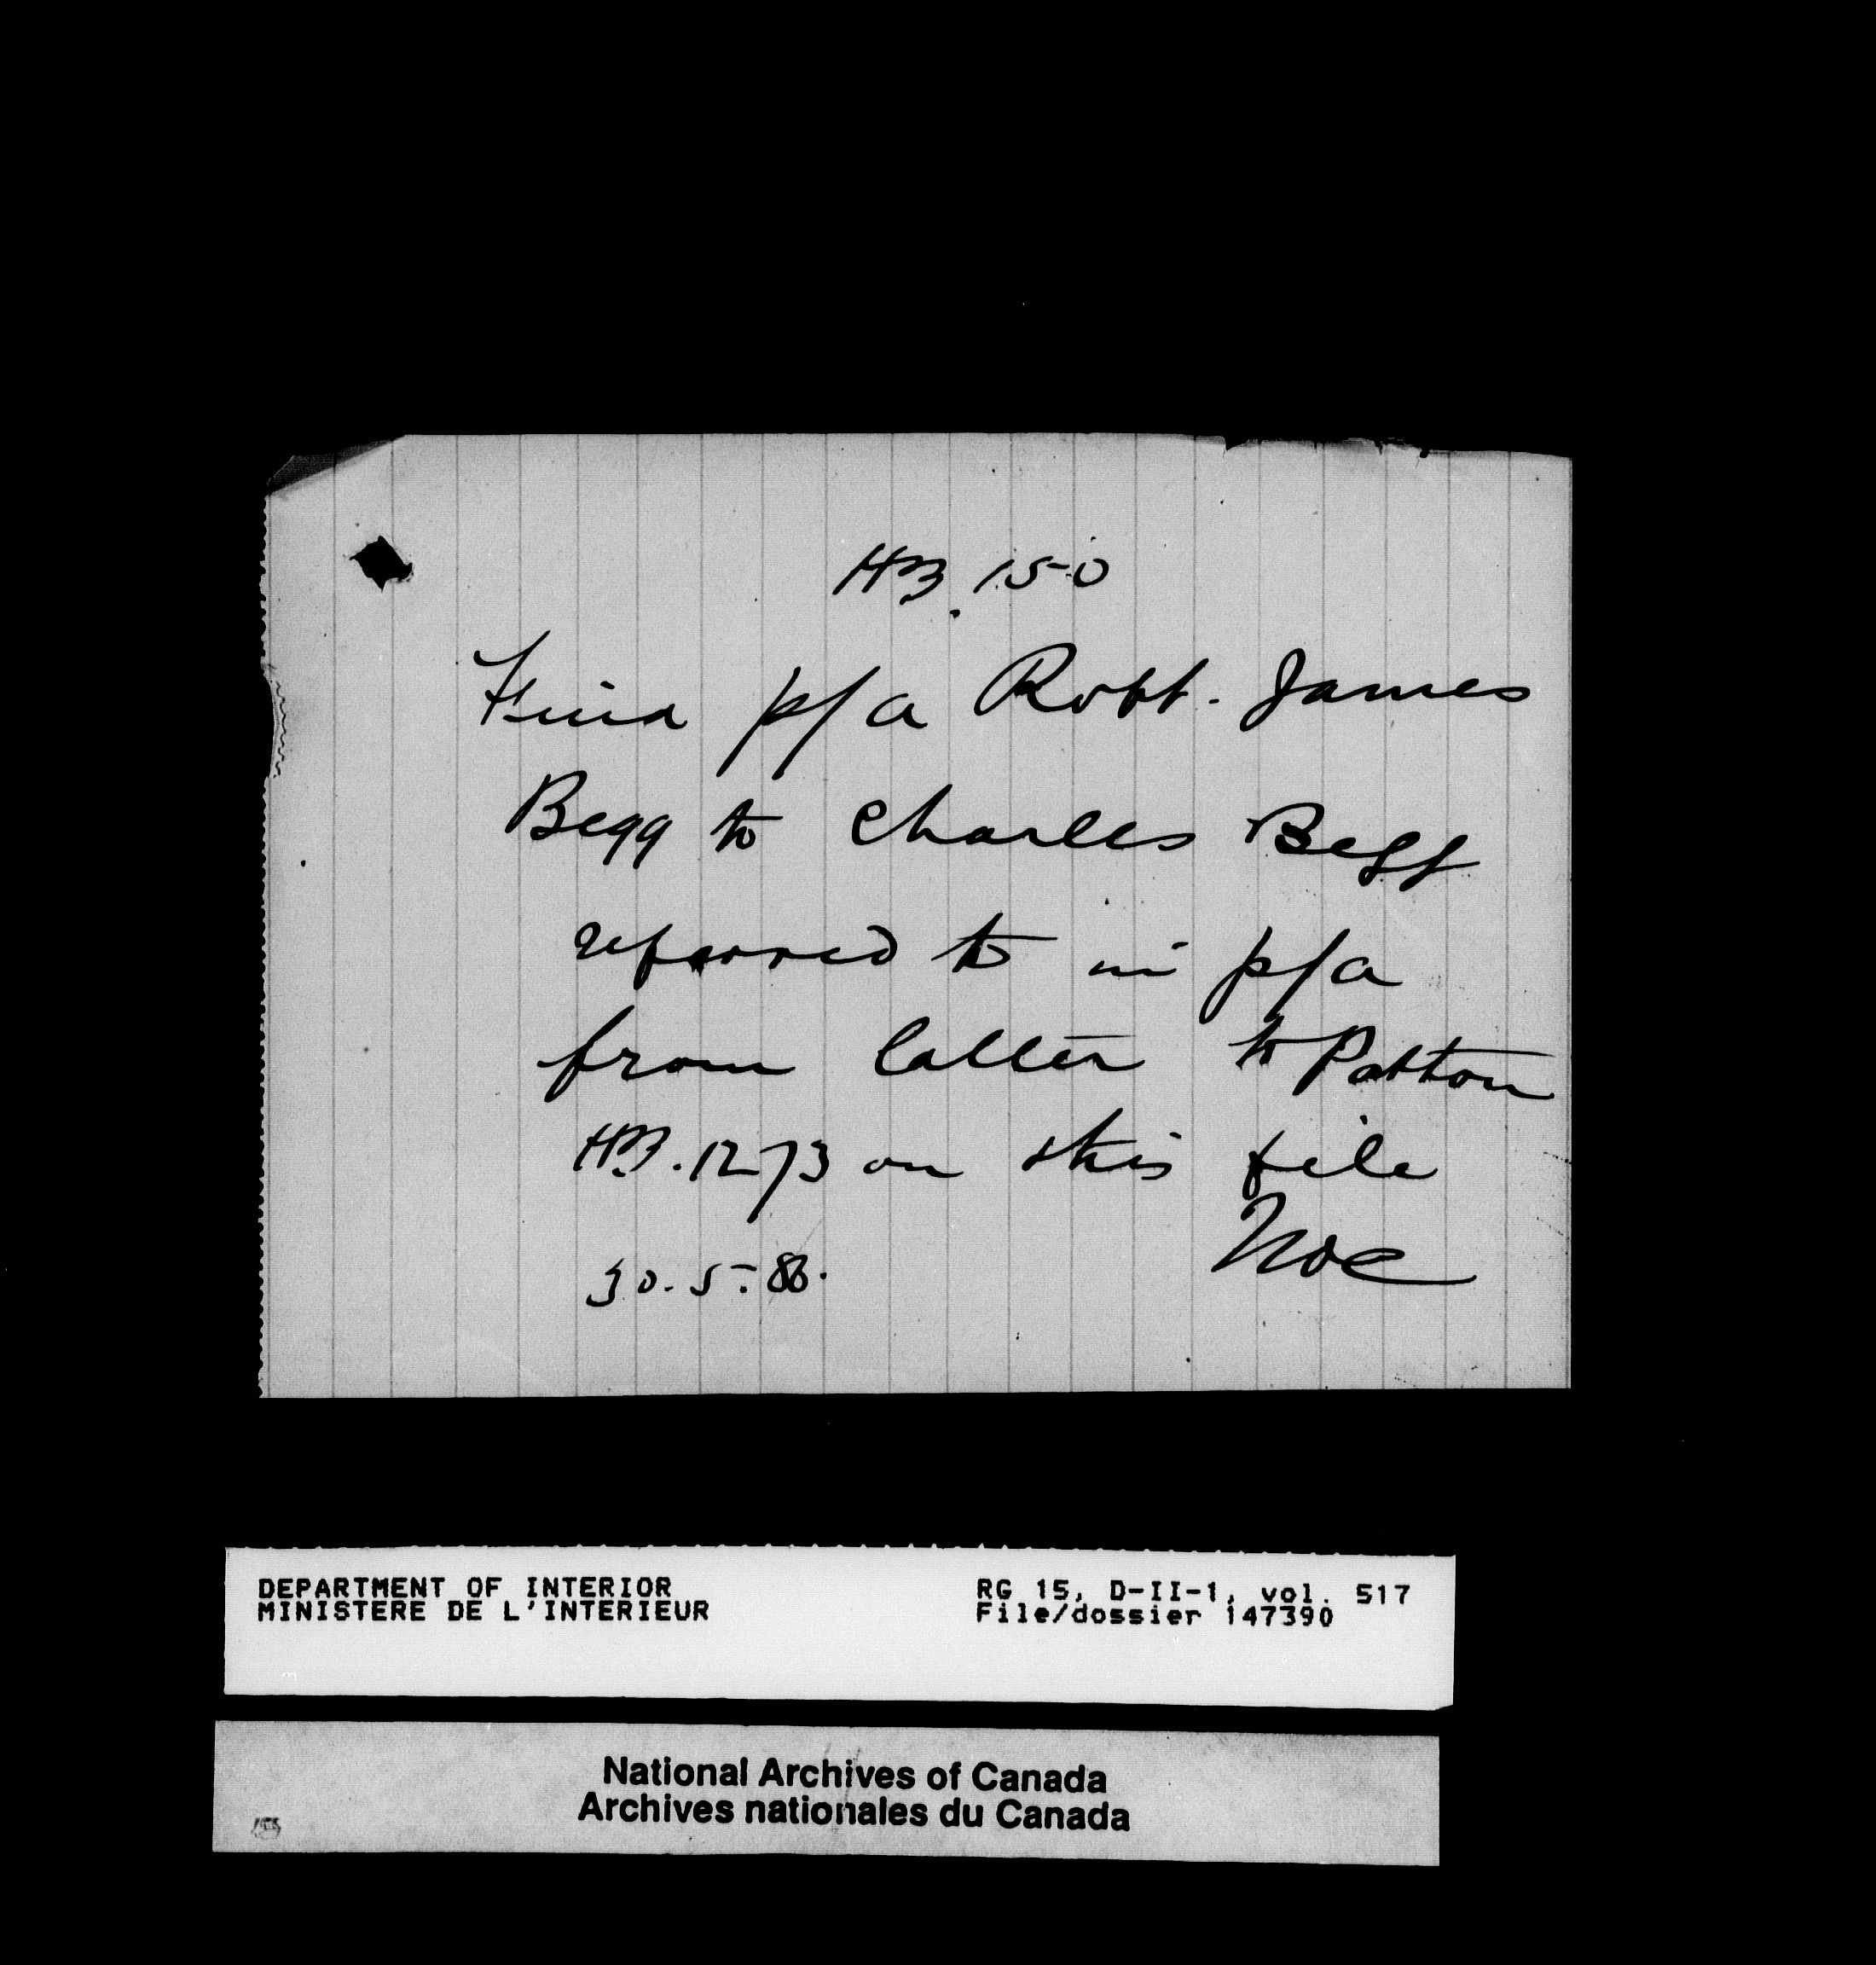 HB. 150
Find p/a Robt. James
Begg to Charles Begg
referred to in p/a
from latter to Patton
HB. 1273 on this file
30.5.88.
DEPARTMENT OF INTERIOR
MINISTERE DE L'INTERIEUR
RG 15, D-II-1, vol. 517
File/dossier 147390
National Archives of Canada
Archives nationales du Canada